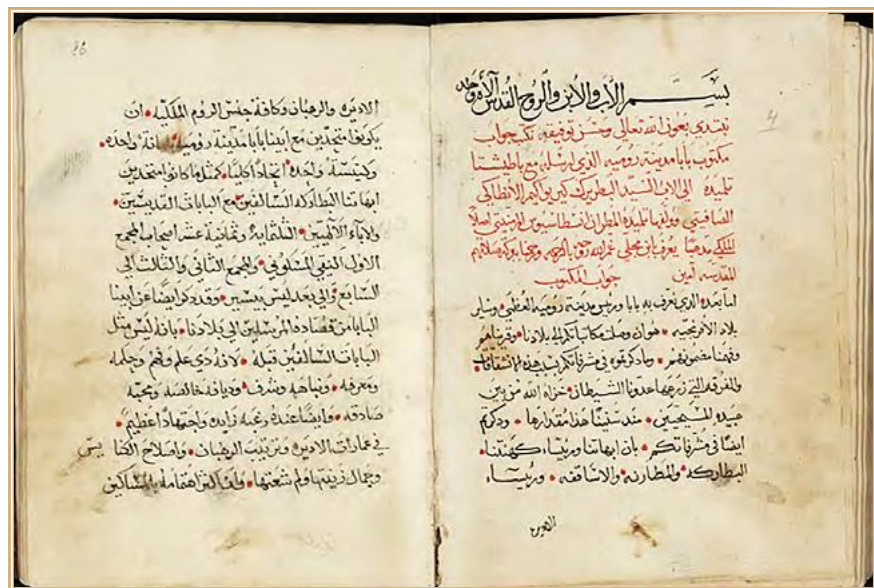 بســـم الاب والابن والروح القدس الاه واحد
نبتدي بعون الله تعالي وحسن توفيقه نكتب جواب
مكتوب بابا مدينة رومية الذي ارسله مع باطيشتا
تلميذه الي الاب السيد البطريرك كير يواكيم الانطاكي
الصافيتي ومولفها تلميذه المطران انسطاسيوس المرمنيتي اصلاً
الملكي مذهبًا يعرف بابن مجلي غمر الله روحه بالرحمه ورحمنا ببركة صلاتهم
المقدسه امين جواب المكتوب
اما بعده الدي نعرف به بابا وريس مدينة روميه العظمي وساير
بلاد الافرنجيه • هو ان وصلت مكاتباتكم الي بلادنا • وقريناهم
وفهمنا مضمونهم • وما دكرتموه في مشرفاتكم بسبب هذه الانشقاقات
والفرقه التي زرعها عدونا الشيطان • خزاه الله من بين
عبيده المسيحيين • مند سنينًا هدا مقدارها • ودكرتم
ايضًا في مشرفاتكم • بان ابهاتنا وريساء كهنتنا •
البطاركه • والمطارنه • والاساقفه • وريساء
الاديره
4
26
الاديره والرهبان وكافة جنس الروم الملكيه • ان
يكونوا متحدين مع ابينا بابا مدينة روميه • بامانة واحده •
وكنيسة واحده • اتحادًا كليًا • كمثل ما كانوا متحدين
ابهاتنا البطاركه السالفين • مع البابات القديسين •
والاباء الالهيين • الثلتماية وثمانية عشر اصحاب المجمع
الاول النيقي المسكوني • والمجمع التاني والتالت الي
السابع • والي بعد ليس بيسير • وقد دكر ايضًا عن ابينا
البابا من قصاده المرسلين الي بلادنا • بانه ليس مثل
البابات السالفين قبله • لانه دي علم وفهم وحلم
ومعرفه • ونباهه وشرف • وديانه خالصه ومحبه
صادقه • وايضًا عنده رغبه زايده واجتهادًا عظيم •
في عمارات الاديره وترتيب الرهبان • واصلاح الكنايس
وجمال زينتها ولم شعتها • وان اكثر اهتمامه بالمساكين